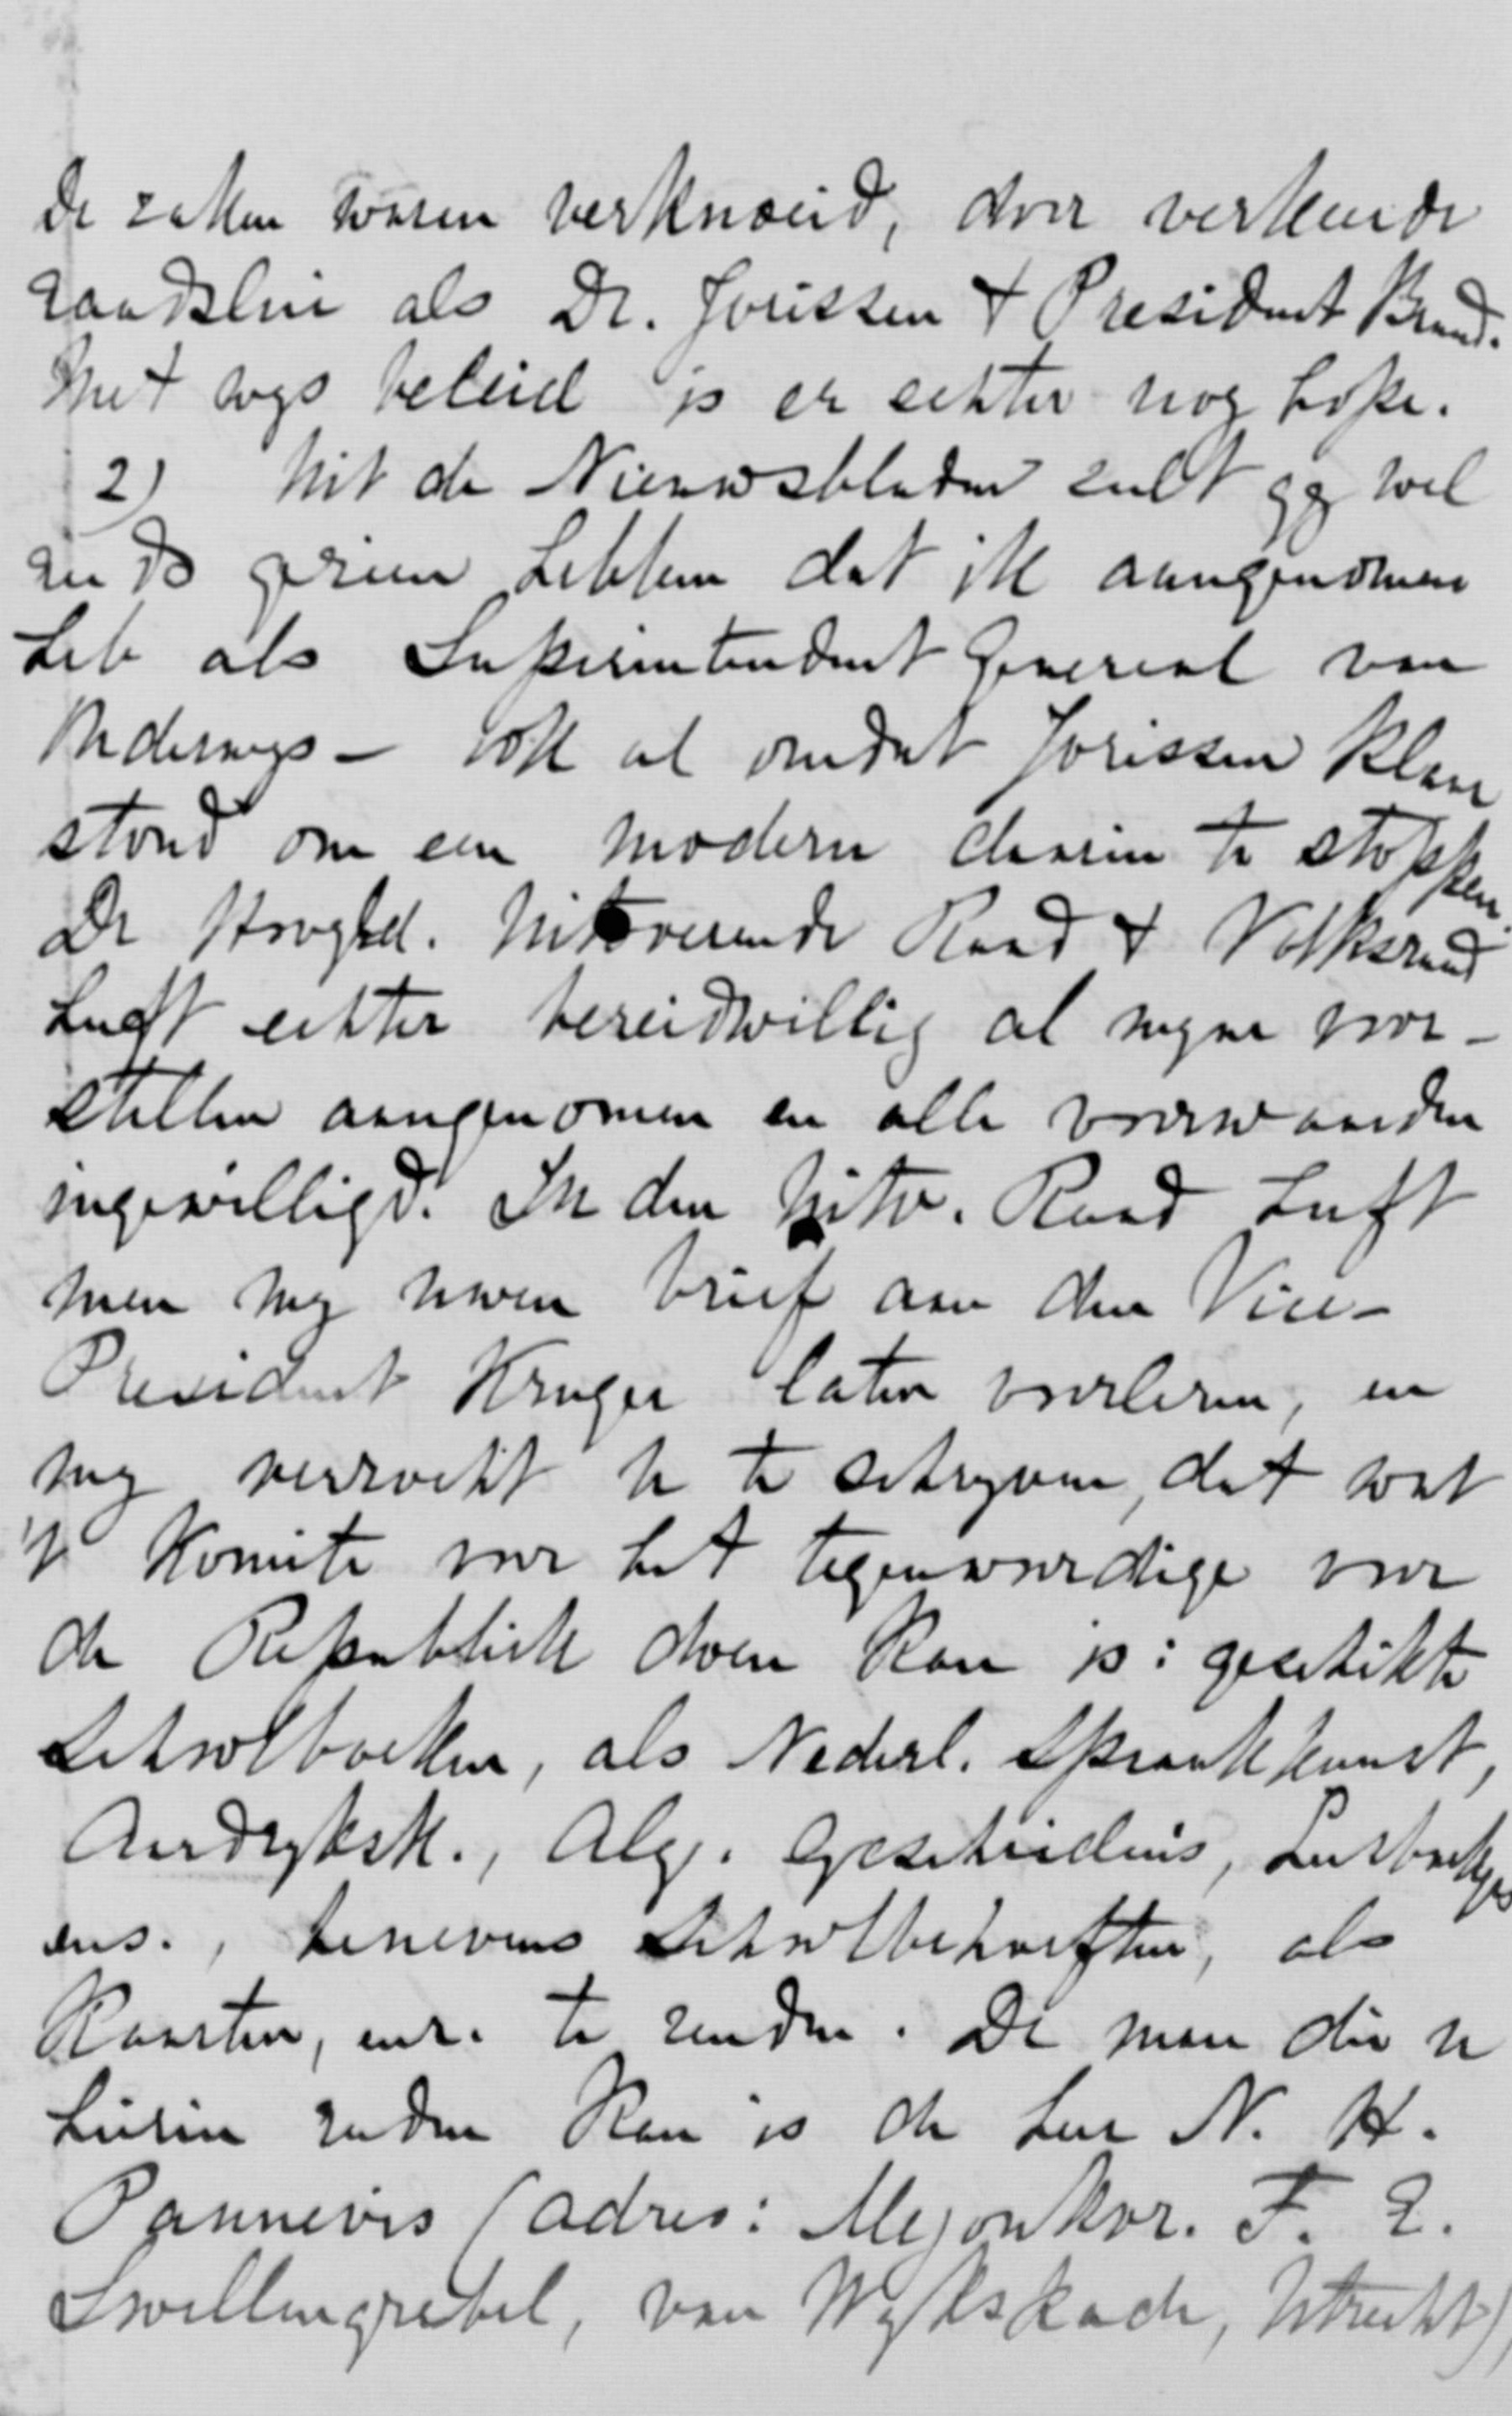 De zaken waren verknoeid, door verkeerde
raadslui als Dr. Jorissen & President Brand.
Met wys beleid is er echter nog hope.
2) Uit de Nieuwsbladen zult gy wel
reeds gezien hebben dat ik aangenomen
heb als Superintendent Generaal van
Onderwys – ook al omdat Jorissen klaar
stond om een modern daarin te stoppen.
De HoogEd. Uitvoerende Raad & Volksraad
heeft echter bereidwillig al myne voor-
stellen aangenomen en alle voorwaarden
ingewilligd. In den Uitv. Raad heeft
men my uwen brief aan den Vice-
President Kruger laten voorlezen, en
my verzocht u te schryven, dat wat
't Komite voor het tegenwoordige voor
de Republiek doen kan is: geschikte
Schoolboeken, als Nederl. Spraakkunst,
Aardryksk., Alg. Geschiedenis, Leesboekjes
enz., benevens Schoolbehoeften, als
Kaarten, enz. te zenden. De man die u
hierin raden kan is de heer N. H.
Pannevis (adres: Mejonkvr. F. E.
Swellengrebel, van Wykskade, Utrecht)